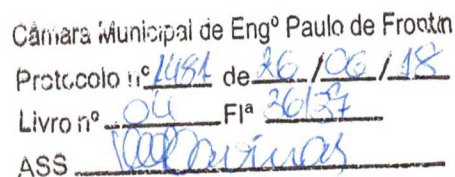 Câmara Municipal de Engº Paulo de Frontin
Protocolo nº 1481 de 26/06/18
Livro nº 04 Flª 26/27
ASS